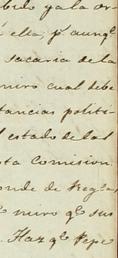 bido ya la or
ella; y aunqe
sacaria de la
miro cual debe
tancias politi
estado de las
ta Comision
onde de Regla,
miro qe sus
Haz qe Pepe